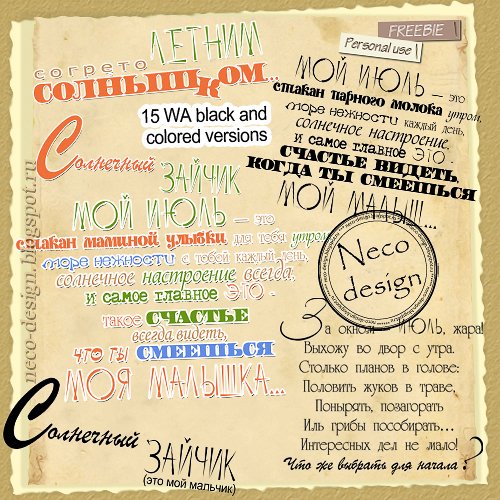 FREEBIE
Personal use
согрето ЛЕТНИМ
СОЛНЫШКОМ...
15 WA black and
colored versions
Солнечный
ЗАЙЧИК
МОЙ ИЮЛЬ — это
стакан маминой улыбки для тебя утром,
море нежности с тобой каждый день,
солнечное настроение всегда,
и самое главное ЭТО -
такое СЧАСТЬЕ
всегда видеть,
что ты СМЕЕШЬСЯ
МОЯ МАЛЫШКА...
Солнечный
ЗАЙЧИК
(это мой мальчик)
МОЙ ИЮЛЬ — это
стакан парного молока утром,
море нежности каждый день,
солнечное настроение,
и самое главное ЭТО -
СЧАСТЬЕ ВИДЕТЬ,
КОГДА ТЫ СМЕЕШЬСЯ
МОЙ МАЛЫШ...
Neco
design
За окном — ИЮЛЬ, жара!
Выхожу во двор с утра.
Столько планов в голове:
Половить жуков в траве,
Понырять, позагорать
Иль грибы пособирать...
Интересных дел не мало!
Что же выбрать для начала?
neco-design.blogspot.ru